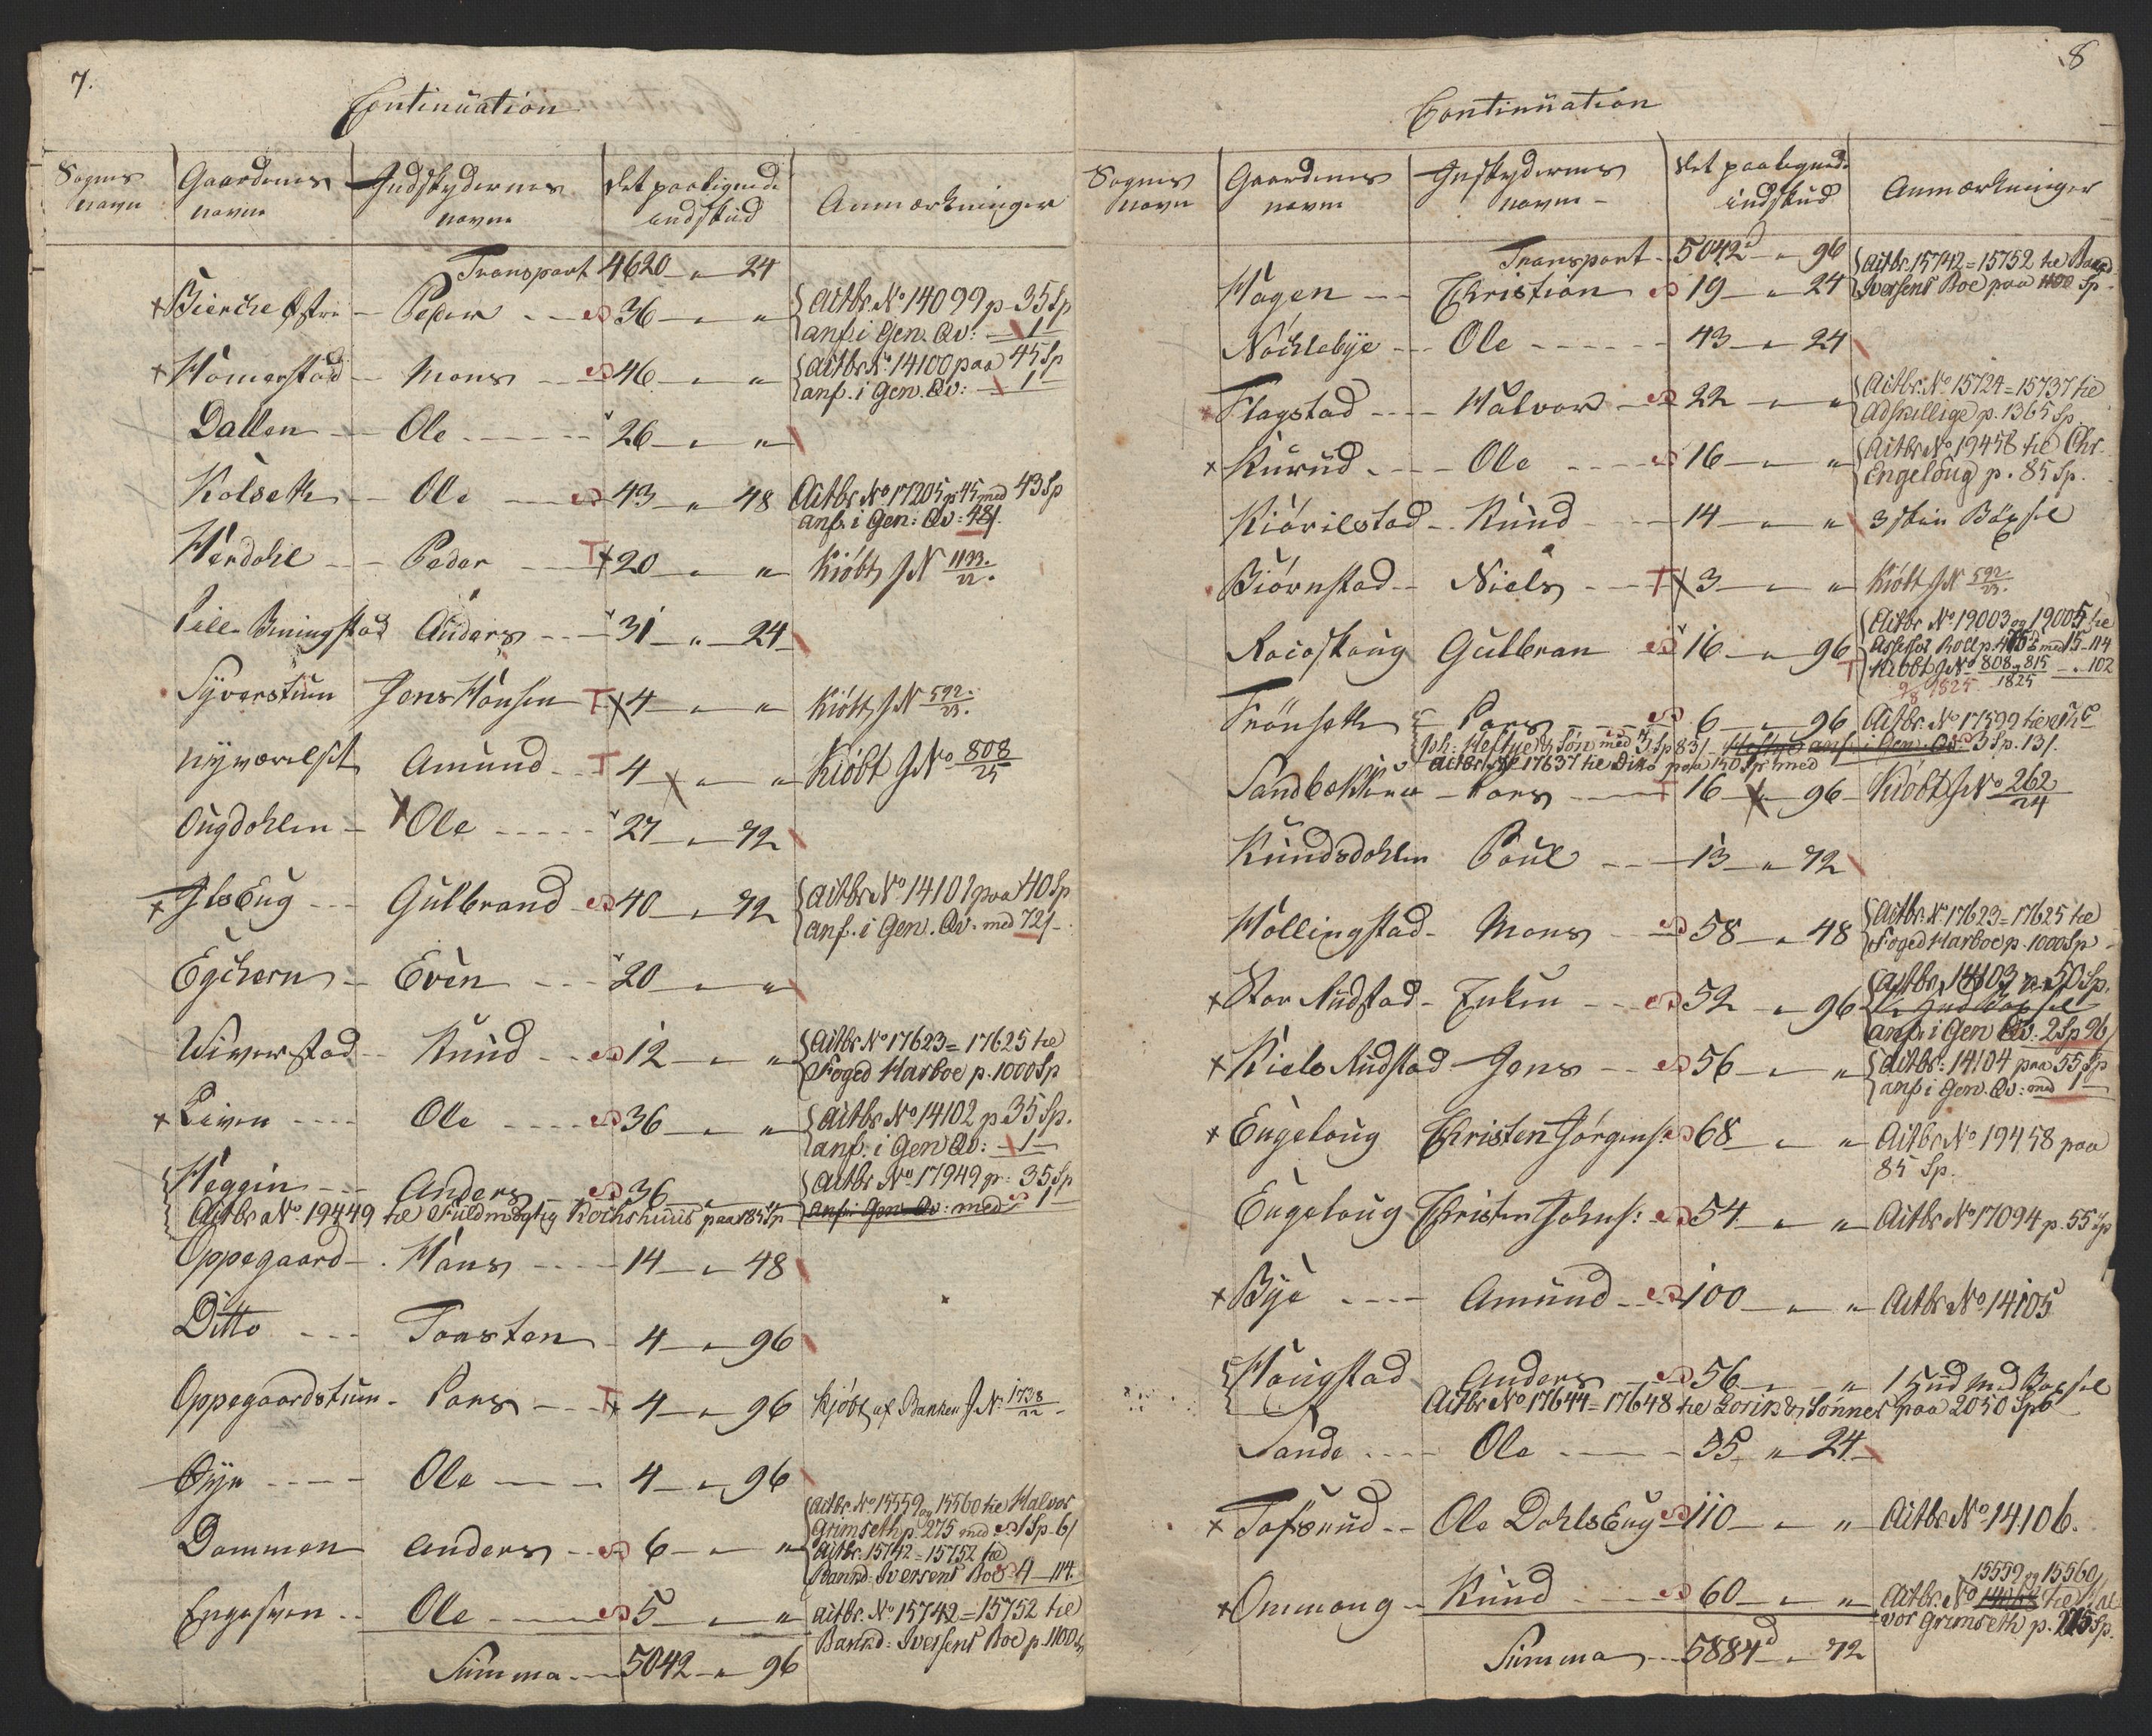 7.
Continuation
Sognes navn | Gaardenes navne | Indskydernes navne | det paalignede indskud | Anmærkninger
Transport 4620 " 24
× Bierche Østre - Peder - 36 " " Actbr. No 14099 p 35 Sp
anf. i Gen. Qv: 1
× Homerstad - Mons - 46 " " Actbr. No 14100 paa 45 Sp
anf. i Gen. Qv: 1
Dallen - Ole - 26 " "
Kolseth - Ole - 43 " 48 Actbr. No 17205 p 45 med 43 Sp
anf. i Gen: Qv: 48/.
Herdahl - Peder - T × 20 " " Kiøbt J N 1133./22.
Lille Beningstad Anders - 31 " 24
Syverstuen Jens Hansen T × 4 " " Kiøbt J N 592./23.
Nyværelset Amund T 4 × " " Kiøbt J No 808/25
Ougdahlen - Ole - 27 " 72
× IlsEng - Gulbrand - 40 " 72 Actbr. No 14101 paa 40 Sp
anf. i Gen. Qv. med 72/-
Egchern - Even - 20 " "
Wiverstad - Knud - 12 " " Actbr No 17623 = 17625 til
Foged Harboe p. 1000 Sp
× Liven - Ole - 36 " " Actbr. No 14102 p 35 Sp.
anf. i Gen Qv: 1
Heggin - Anders - 36 " " Actbr No 17949 p: 35 Sp
Actbr No 19449 til Fuldmægtig Kochshuus paa 185 Sp anf. i Gen. Qv: med 1
Oppegaard - Hans - 14 " 48
Ditto - Torsten - 4 " 96
Oppegaardstuen - Lars - T × 4 " 96 Kjøbt af Banken J N. 1738/22 -
Øyn - Ole - 4 " 96
Dammen Anders - 6 " " Actbr. No 15559 og 15560 til Halvor
Grimseth p. 275 med 1 Sp. 6/
Actbr. 15742 = 15752 til
Bannd: Iversens Boe 4 - 114.
Engesven - Ole - 5 " " Actbr. No 15742 = 15752 til
Bannd: Iversens Boe p. 1100 Sp
Summa - 5042 " 96
8
Continuation
Sognes navn | Gaardenes navne | Inskydernes navne - | det paalignede indskud | Anmærkninger
Transport - 5042 " 96 Actbr. 15742 = 15752 til Bannd
Hagen - Christian 19 " 24 Iversens Boe paa 1100 Sp -
Nochlebye - Ole - 43 " 24
Flagstad - Halvor - 22 " " Actbr. No 15724 = 15737 til
Adskillige p. 1365 Sp
× Kurud - Ole - 16 " " Actbr No 19458 til Chr.
Engeloug p. 85 Sp.
Kiørilstad - Knud - 14 " " 3 Bøxsel
Biørnstad - Niels - T × 3 " " Kiøbt J N 592/23.
Roeoskoug Gulbran 16 " 96 Actbr No 19003 og 19005 til
Assessor Roll p. 475 med 15-114
T Kiøbt J No 808 & 815/1825 - " 102
9/8 1825
Frønseth - Lars - 6 " 96 Actbr. No 17599 til
Joh: Heftye & Søn med 3 Sp 83/- Heftye anf i Gen. Qv: 3 Sp. 13/.
Actbr No 17637 til Ditto paa 150 Sp med
Sandbækken - Lars - T 16 × 96 - Kiøbt J No 262/24
Knudsdahlen Poul - 13 " 72
Hollingstad - Mons - 58 " 48 Actbr. N. 17623 = 17625 til
Foged Harboe p. 1000 Sp -
× Stor Rudstad - 52 " 96 Actbr. 14103 p 50 Sp.
anf. i Gen Qv: 2 Sp 96/
× Kiels Rudstad Jens - 56 " " Actbr: 14104 paa 55 Sp
anf i Gen. Qv: med 1
× Engeloug Christen Jørgens: 68 " " Actbr. No 19458 paa
85 Sp.
Engeloug Christen Johns: 54 " " Actbr. No 17094 p. 55 Sp
× Bye - Amund - 100 " " Actbr No 14105
Hougstad Anders - 56 " " 1 Hud med Boxsel
Actbr No 17644 = 17648 til Lorik & Sønner paa 2050 Sp
Sande - Ole - 35 " 24
× Tofsrud - Ole DahlsEng - 110 " " Actbr. No 14106.
15559 og 15560
× Ommang - Knud - 60 " " Actbr. No til Hal
vor Grimseth p. 275 Sp.
Summa - 5884 " 72